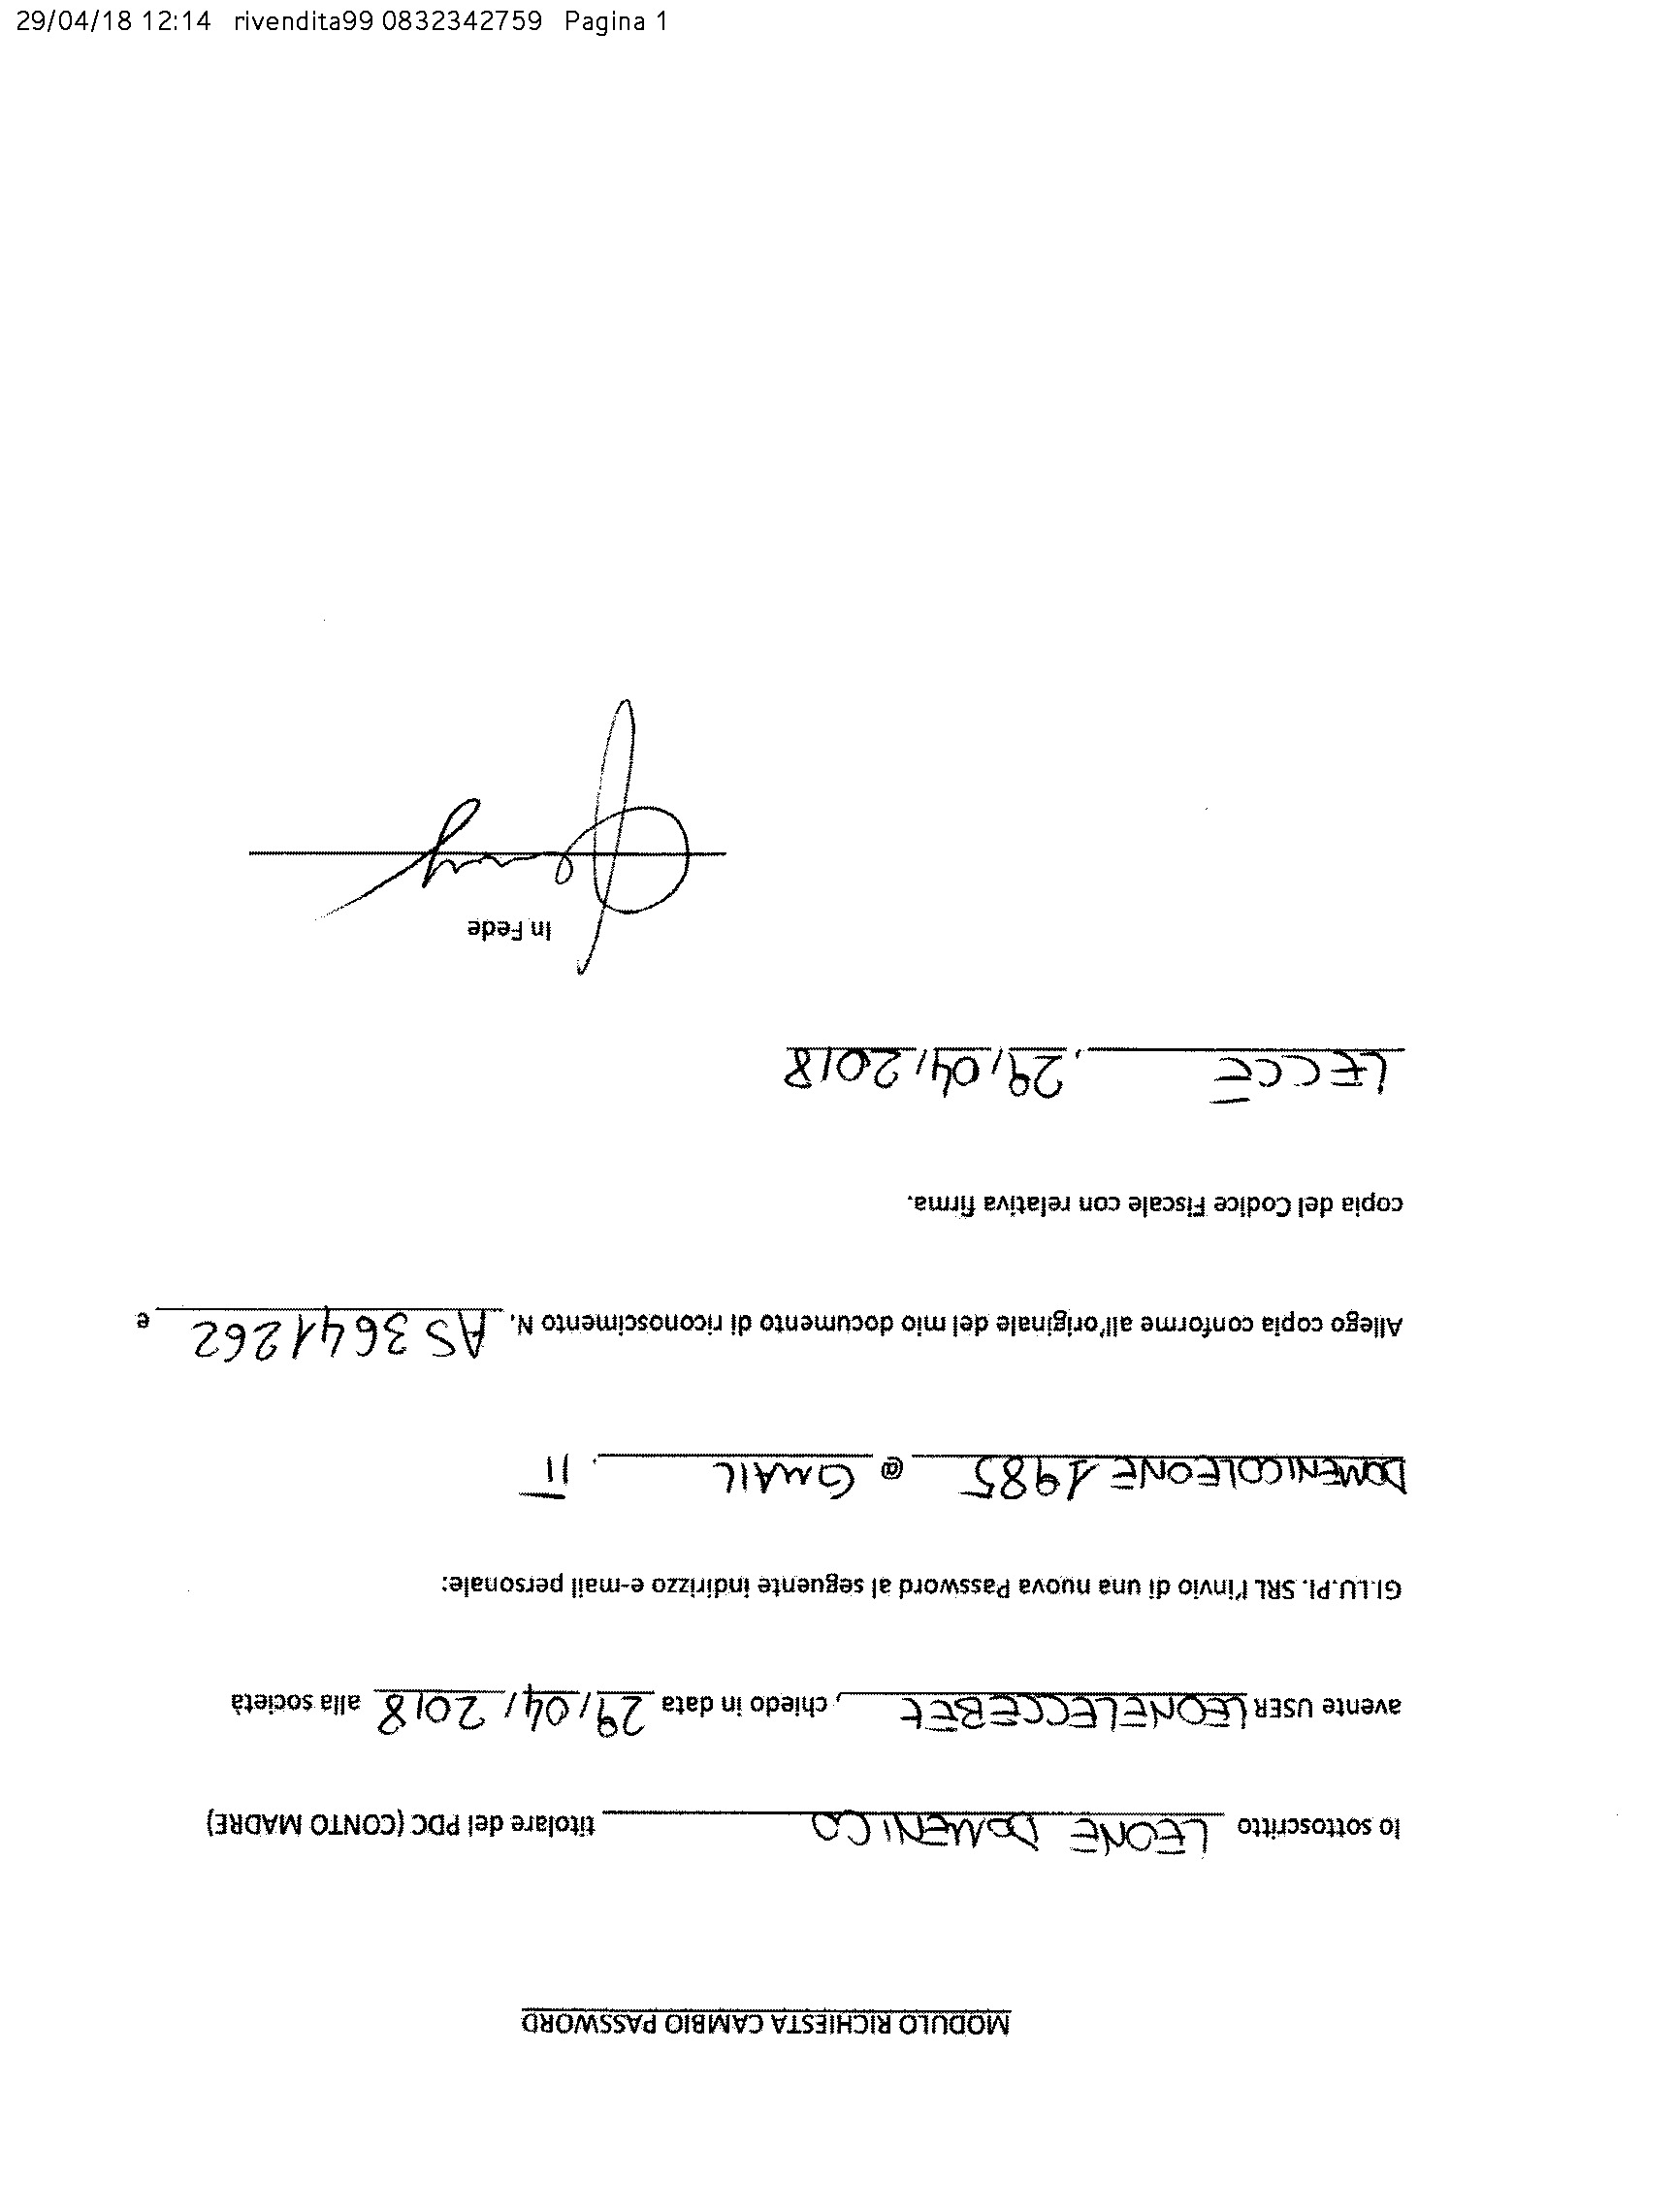 29/04/18 12:14 rivendita99 0832342759 Pagina 1
MODULO RICHIESTA CAMBIO PASSWORD
Io sottoscritto LEONE DOMENICO titolare del PDC (CONTO MADRE)
avente USER LEONELECCEBET, chiedo in data 29/04/2018 alla società
GI.LU.PI. SRL l'invio di una nuova Password al seguente indirizzo e-mail personale:
DOMENICOLEONE1985 @ GMAIL . IT
Allego copia conforme all'originale del mio documento di riconoscimento N. AS 3641262 e
copia del Codice Fiscale con relativa firma.
LECCE, 29/04/2018
In Fede